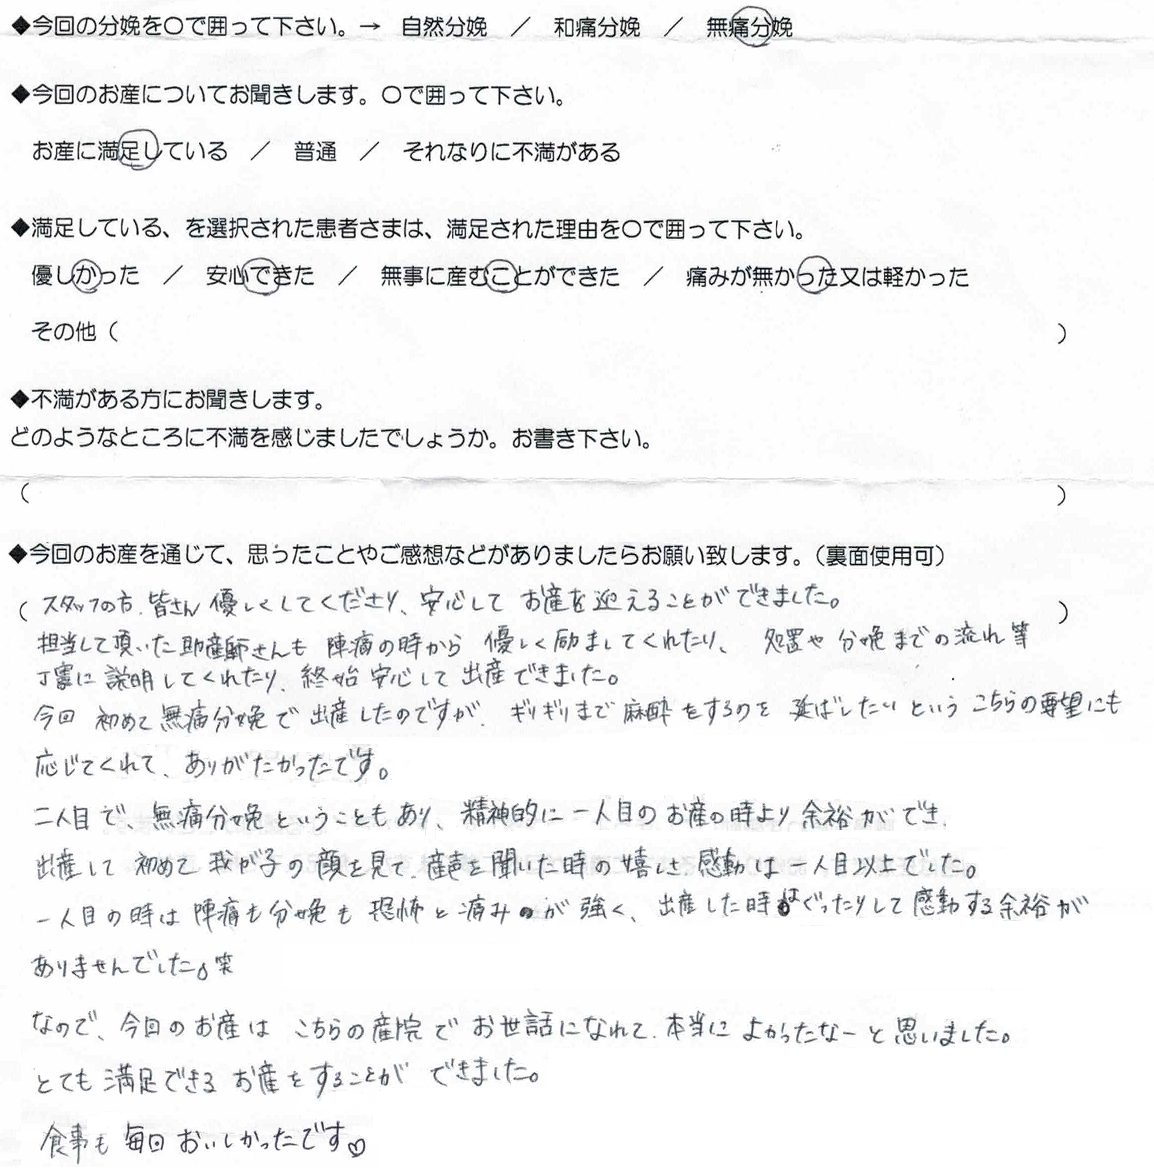 ◆今回の分娩を〇で囲って下さい。→ 自然分娩 ／ 和痛分娩 ／ 無痛分娩
◆今回のお産についてお聞きします。〇で囲って下さい。
お産に満足している ／ 普通 ／ それなりに不満がある
◆満足している、を選択された患者さまは、満足された理由を〇で囲って下さい。
優しかった ／ 安心できた ／ 無事に産むことができた ／ 痛みが無かった又は軽かった
その他（ ）
◆不満がある方にお聞きします。
どのようなところに不満を感じましたでしょうか。お書き下さい。
（ ）
◆今回のお産を通じて、思ったことやご感想などがありましたらお願い致します。（裏面使用可）
（スタッフの方、皆さん優しくしてくださり、安心してお産を迎えることができました。 ）
担当して頂いた助産師さんも陣痛の時から優しく励ましてくれたり、処置や分娩までの流れ等
丁寧に説明してくれたり、終始安心して出産できました。
今回初めて無痛分娩で出産したのですが、ギリギリまで麻酔をするのを延ばしたいというこちらの要望にも
応じてくれて、ありがたかったです。
二人目で、無痛分娩ということもあり、精神的に一人目のお産の時より余裕ができ、
出産して初めて我が子の顔を見て、産声を聞いた時の嬉しさ、感動は一人目以上でした。
一人目の時は陣痛も分娩も恐怖と痛みが強く、出産した時はぐったりして感動する余裕が
ありませんでした。笑
なので、今回のお産はこちらの産院でお世話になれて、本当によかったなーと思いました。
とても満足できるお産をすることができました。
食事も毎回おいしかったです♡